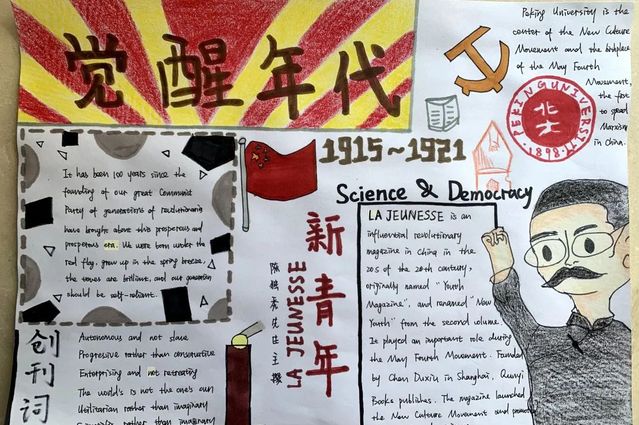 觉醒年代
Peking University is the
center of the New Culture
Movement and the birthplace
of the May Fourth
Movement,
the first
to spread
Marxism
in China.
PEKING UNIVERSITY
北大
1898
1915~1921
Science & Democracy
It has been 100 years since the
founding of our great Communist
Party of generations of revolutionaries
have brought about this prosperous and
prosperous era. We were born under the
red flag, grow up in the spring breeze,
the times are brilliant, and our generation
should be self-reliant.
新青年
LA JEUNESSE
陈独秀先生主撰
LA JEUNESSE is an
influential revolutionary
magazine in China in the
20s of the 20th century,
originally named "Youth
Magazine", and renamed "New
Youth" from the second volume.
It played an important role during
the May Fourth Movement. Founded
by Chen Duxiu in Shanghai, Qunyi
Books publishes. The magazine launched
the New Culture Movement and
创刊词
Autonomous and not slave
Progressive rather than conservative
Enterprising and not retreating
The world's is not the one's own
Utilitarian rather than imaginary
rather than imaginary